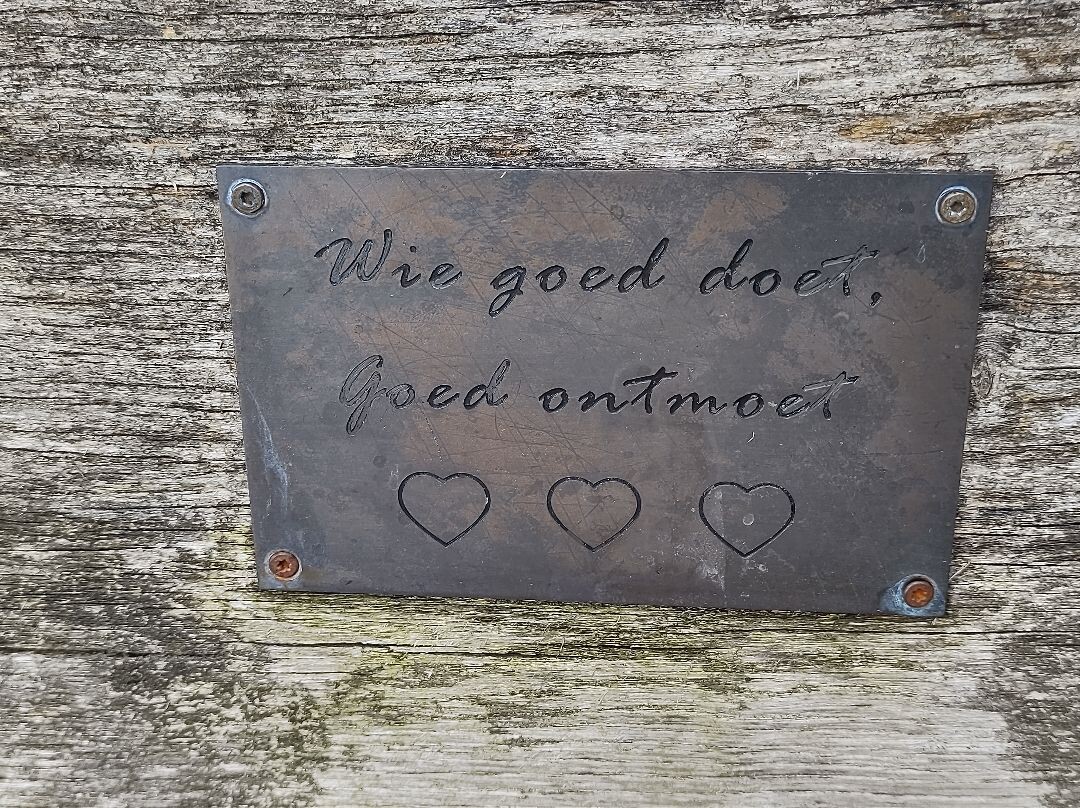 Wie goed doet,
Goed ontmoet